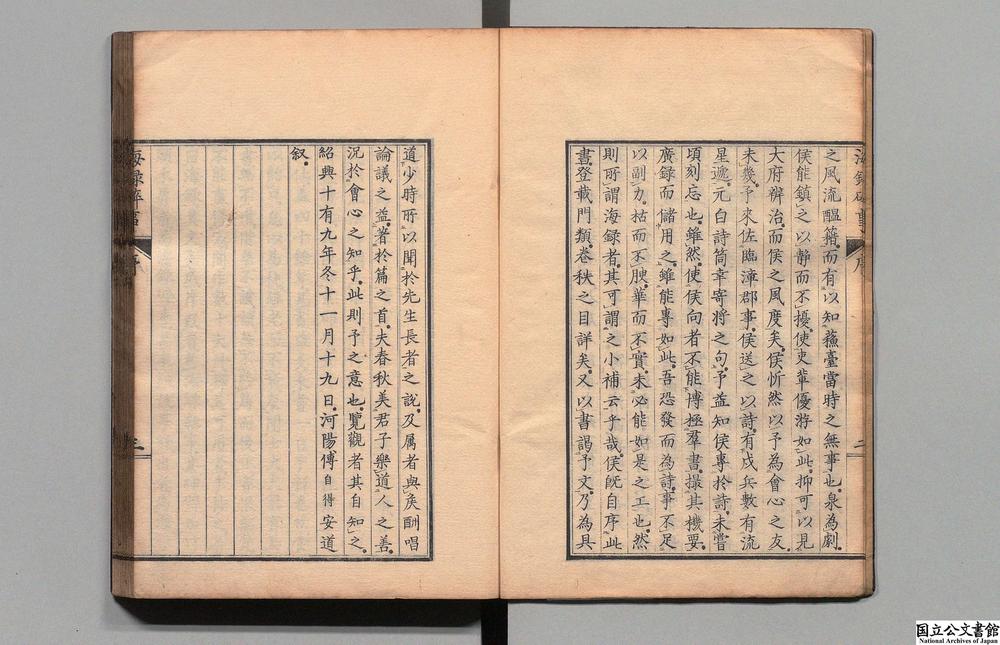 之風流醞籍而有以知蘓臺當時之無事也泉為劇
侯能鎮之以靜而不擾使吏軰優游如此抑可以見
大府辦治而侯之風度矣侯忻然以予為會心之友
未幾予來佐臨漳郡事侯送之以詩有戍兵數有流
星遞元白詩筒幸寄將之句予益知侯專於詩未嘗
頃刻忘也雖然使侯向者不能博極羣書撮其機要
廣録而儲用之雖能專如此吾恐發而為詩事不足
以副力枯而不腴華而不實未必能如是之工也然
則所謂海録者其可謂之小補云乎哉侯既自序此
書登載門類卷秩之目詳矣又以書謁予文乃為具
道少時所以聞於先生長者之説及厲者與侯酬唱
論議之益著於篇之首夫春秋美君子樂道人之善
況於會心之知乎此則予之意也覽觀者其自知之
紹興十有九年冬十一月十九日河陽傅自得安道
叙
海録碎事
序
三
国立公文書館
National Archives of Japan